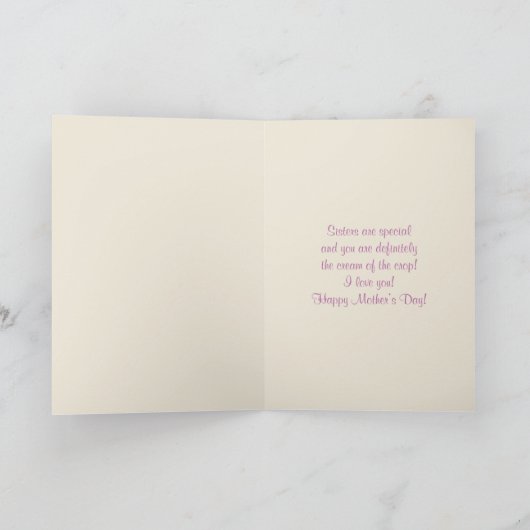 Sisters are special
and you are definitely
the cream of the crop!
I love you!
Happy Mother's Day!